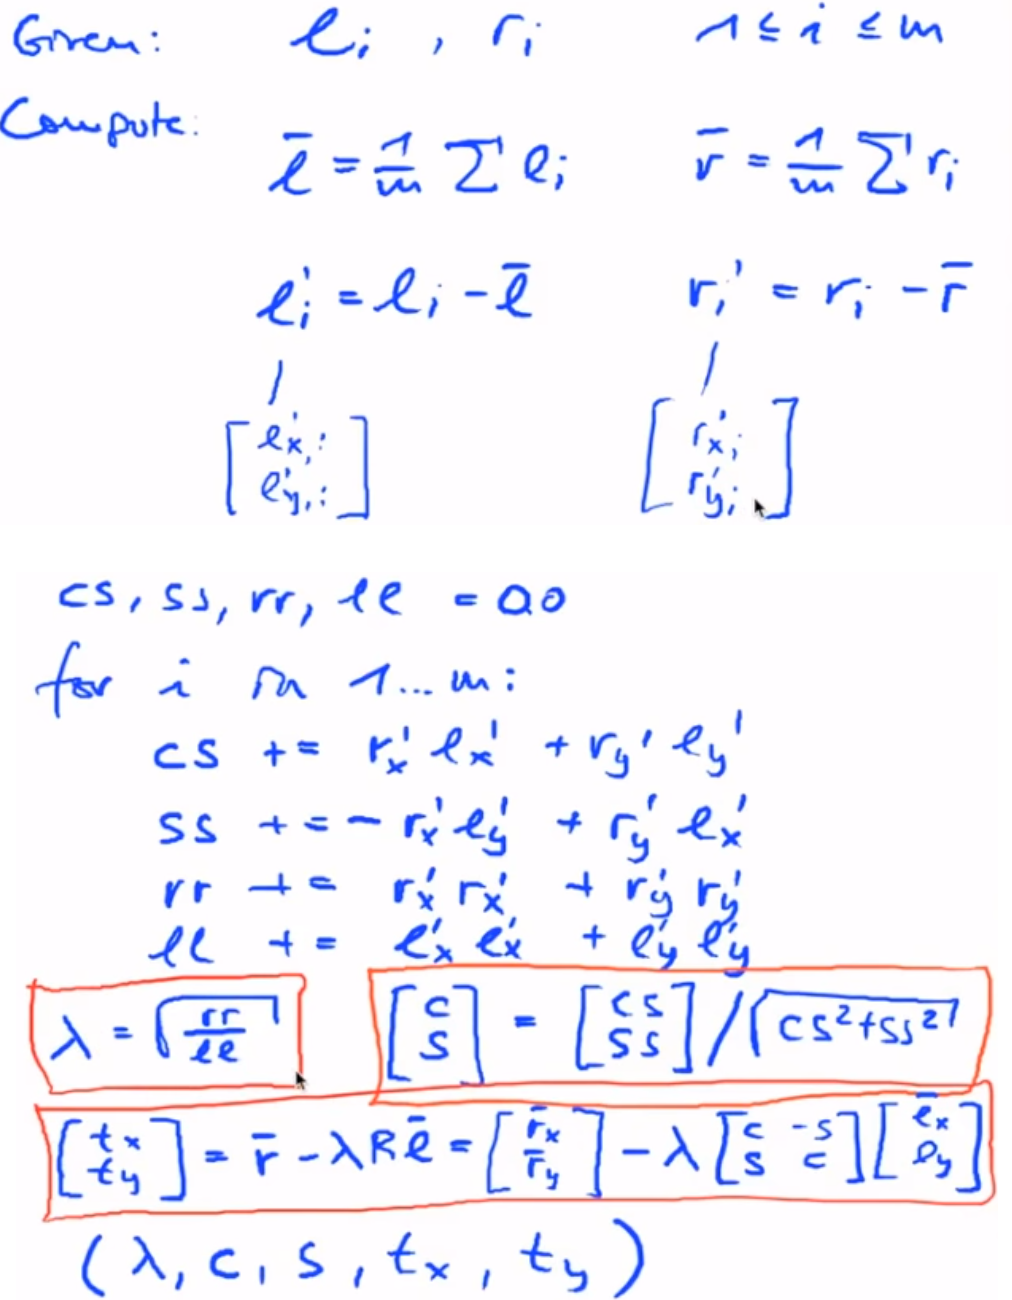 Given: ℓᵢ , rᵢ 1 ≤ i ≤ m
Compute:
ℓ̄ = 1/m Σ ℓᵢ r̄ = 1/m Σ rᵢ
ℓᵢ' = ℓᵢ - ℓ̄ rᵢ' = rᵢ - r̄
[ℓ'x,i ℓ'y,i] [r'x,i r'y,i]
cs, ss, rr, ℓℓ = 0.0
for i in 1...m:
cs += rx' ℓx' + ry' ℓy'
ss += - rx' ℓy' + ry' ℓx'
rr += rx' rx' + ry' ry'
ℓℓ += ℓx' ℓx' + ℓy' ℓy'
λ = √(rr/ℓℓ) [c s] = [cs ss] / √(cs²+ss²)
[tx ty] = r̄ - λRℓ̄ = [r̄x r̄y] - λ [c -s s c] [ℓ̄x ℓy]
(λ, c, s, tx, ty)